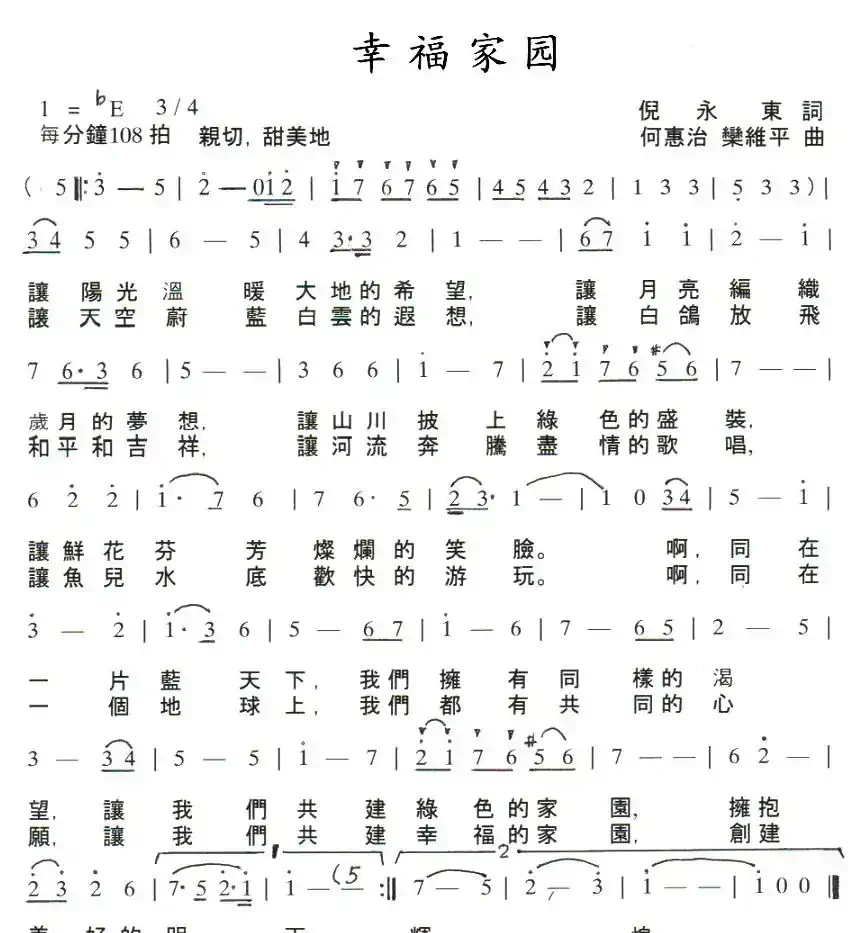 幸福家园
1 = ♭E 3/4
倪永東 詞
每分鐘108拍 親切, 甜美地
何惠治 欒維平 曲
( 5 ‖: 3 — 5 | 2 — 0 1 2 | 1 7 6 7 6 5 | 4 5 4 3 2 | 1 3 3 | 5 3 3 ) |
3 4 5 5 | 6 — 5 | 4 3·3 2 | 1 — — | 6 7 1 1 | 2 — 1 |
讓陽光溫暖大地的希望, 讓月亮編織
讓天空蔚藍白雲的遐想, 讓白鴿放飛
7 6·3 6 | 5 — — | 3 6 6 | 1 — 7 | 2 1 7 6 #5 6 | 7 — — |
歲月的夢想, 讓山川披上綠色的盛裝,
和平和吉祥, 讓河流奔騰盡情的歌唱,
6 2 2 | 1· 7 6 | 7 6· 5 | 2 3· 1 — | 1 0 3 4 | 5 — 1 |
讓鮮花芬芳燦爛的笑臉。 啊, 同在
讓魚兒水底歡快的游玩。 啊, 同在
3 — 2 | 1·3 6 | 5 — 6 7 | 1 — 6 | 7 — 6 5 | 2 — 5 |
一片藍天下, 我們擁有同樣的渴
一個地球上, 我們都有共同的心
3 — 3 4 | 5 — 5 | 1 — 7 | 2 1 7 6 #5 6 | 7 — — | 6 2 — |
望, 讓我們共建綠色的家園, 擁抱
願, 讓我們共建幸福的家園, 創建
2 3 2 6 | 7·5 2·1 | 1 — — (5 :‖ 7 — 5 | 2 — 3 | 1 — — | 1 0 0 ‖
2